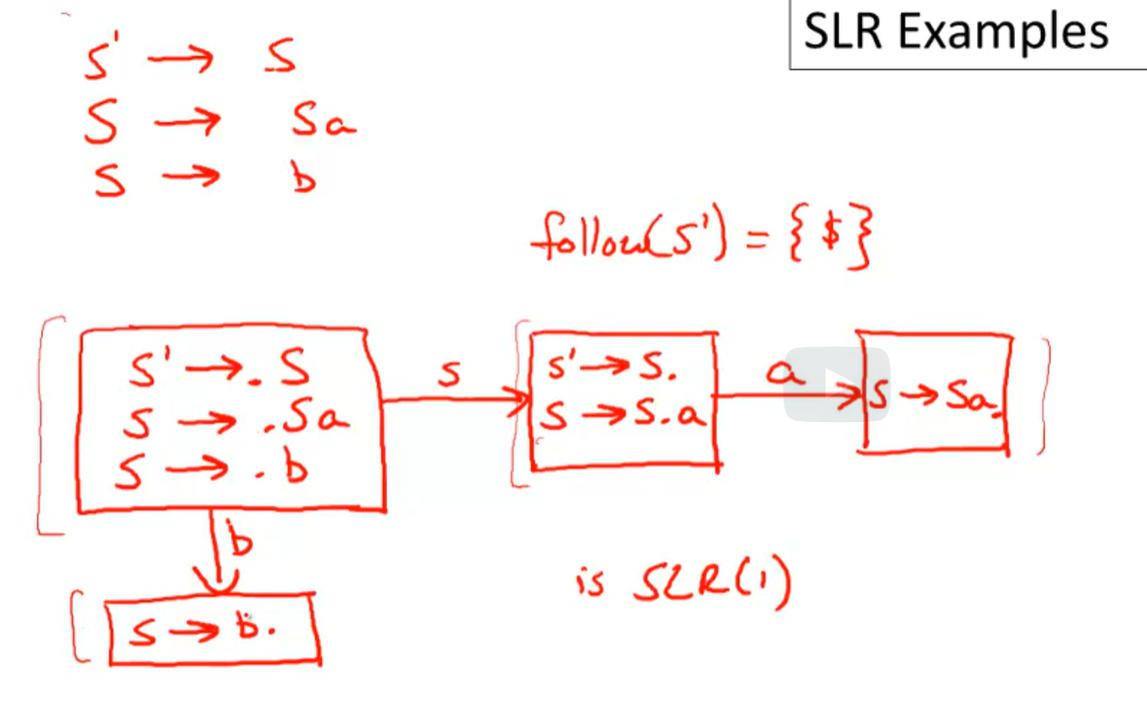 SLR Examples
S' → S
S → Sa
S → b
follow(S') = {$}
S' → . S
S → .Sa
S → .b
S
S' → S.
S → S.a
a
S → Sa.
b
S → b.
is SLR(1)